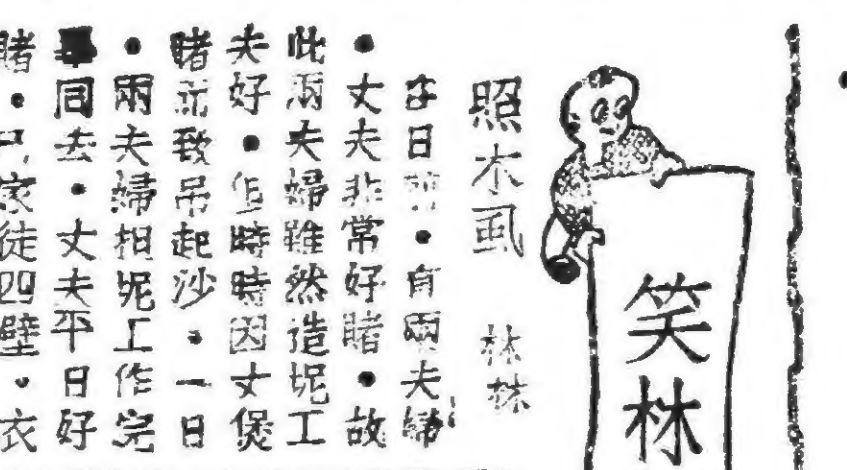 笑林
照木虱 林林
日前。有兩夫婦
。丈夫非常好睹。故
此兩夫婦雖然造坭工
夫好。但時時因丈煲
睹而致吊起沙。一日
。兩夫婦担坭工作完
同去。丈夫平日好
睹。已家徒四壁。衣